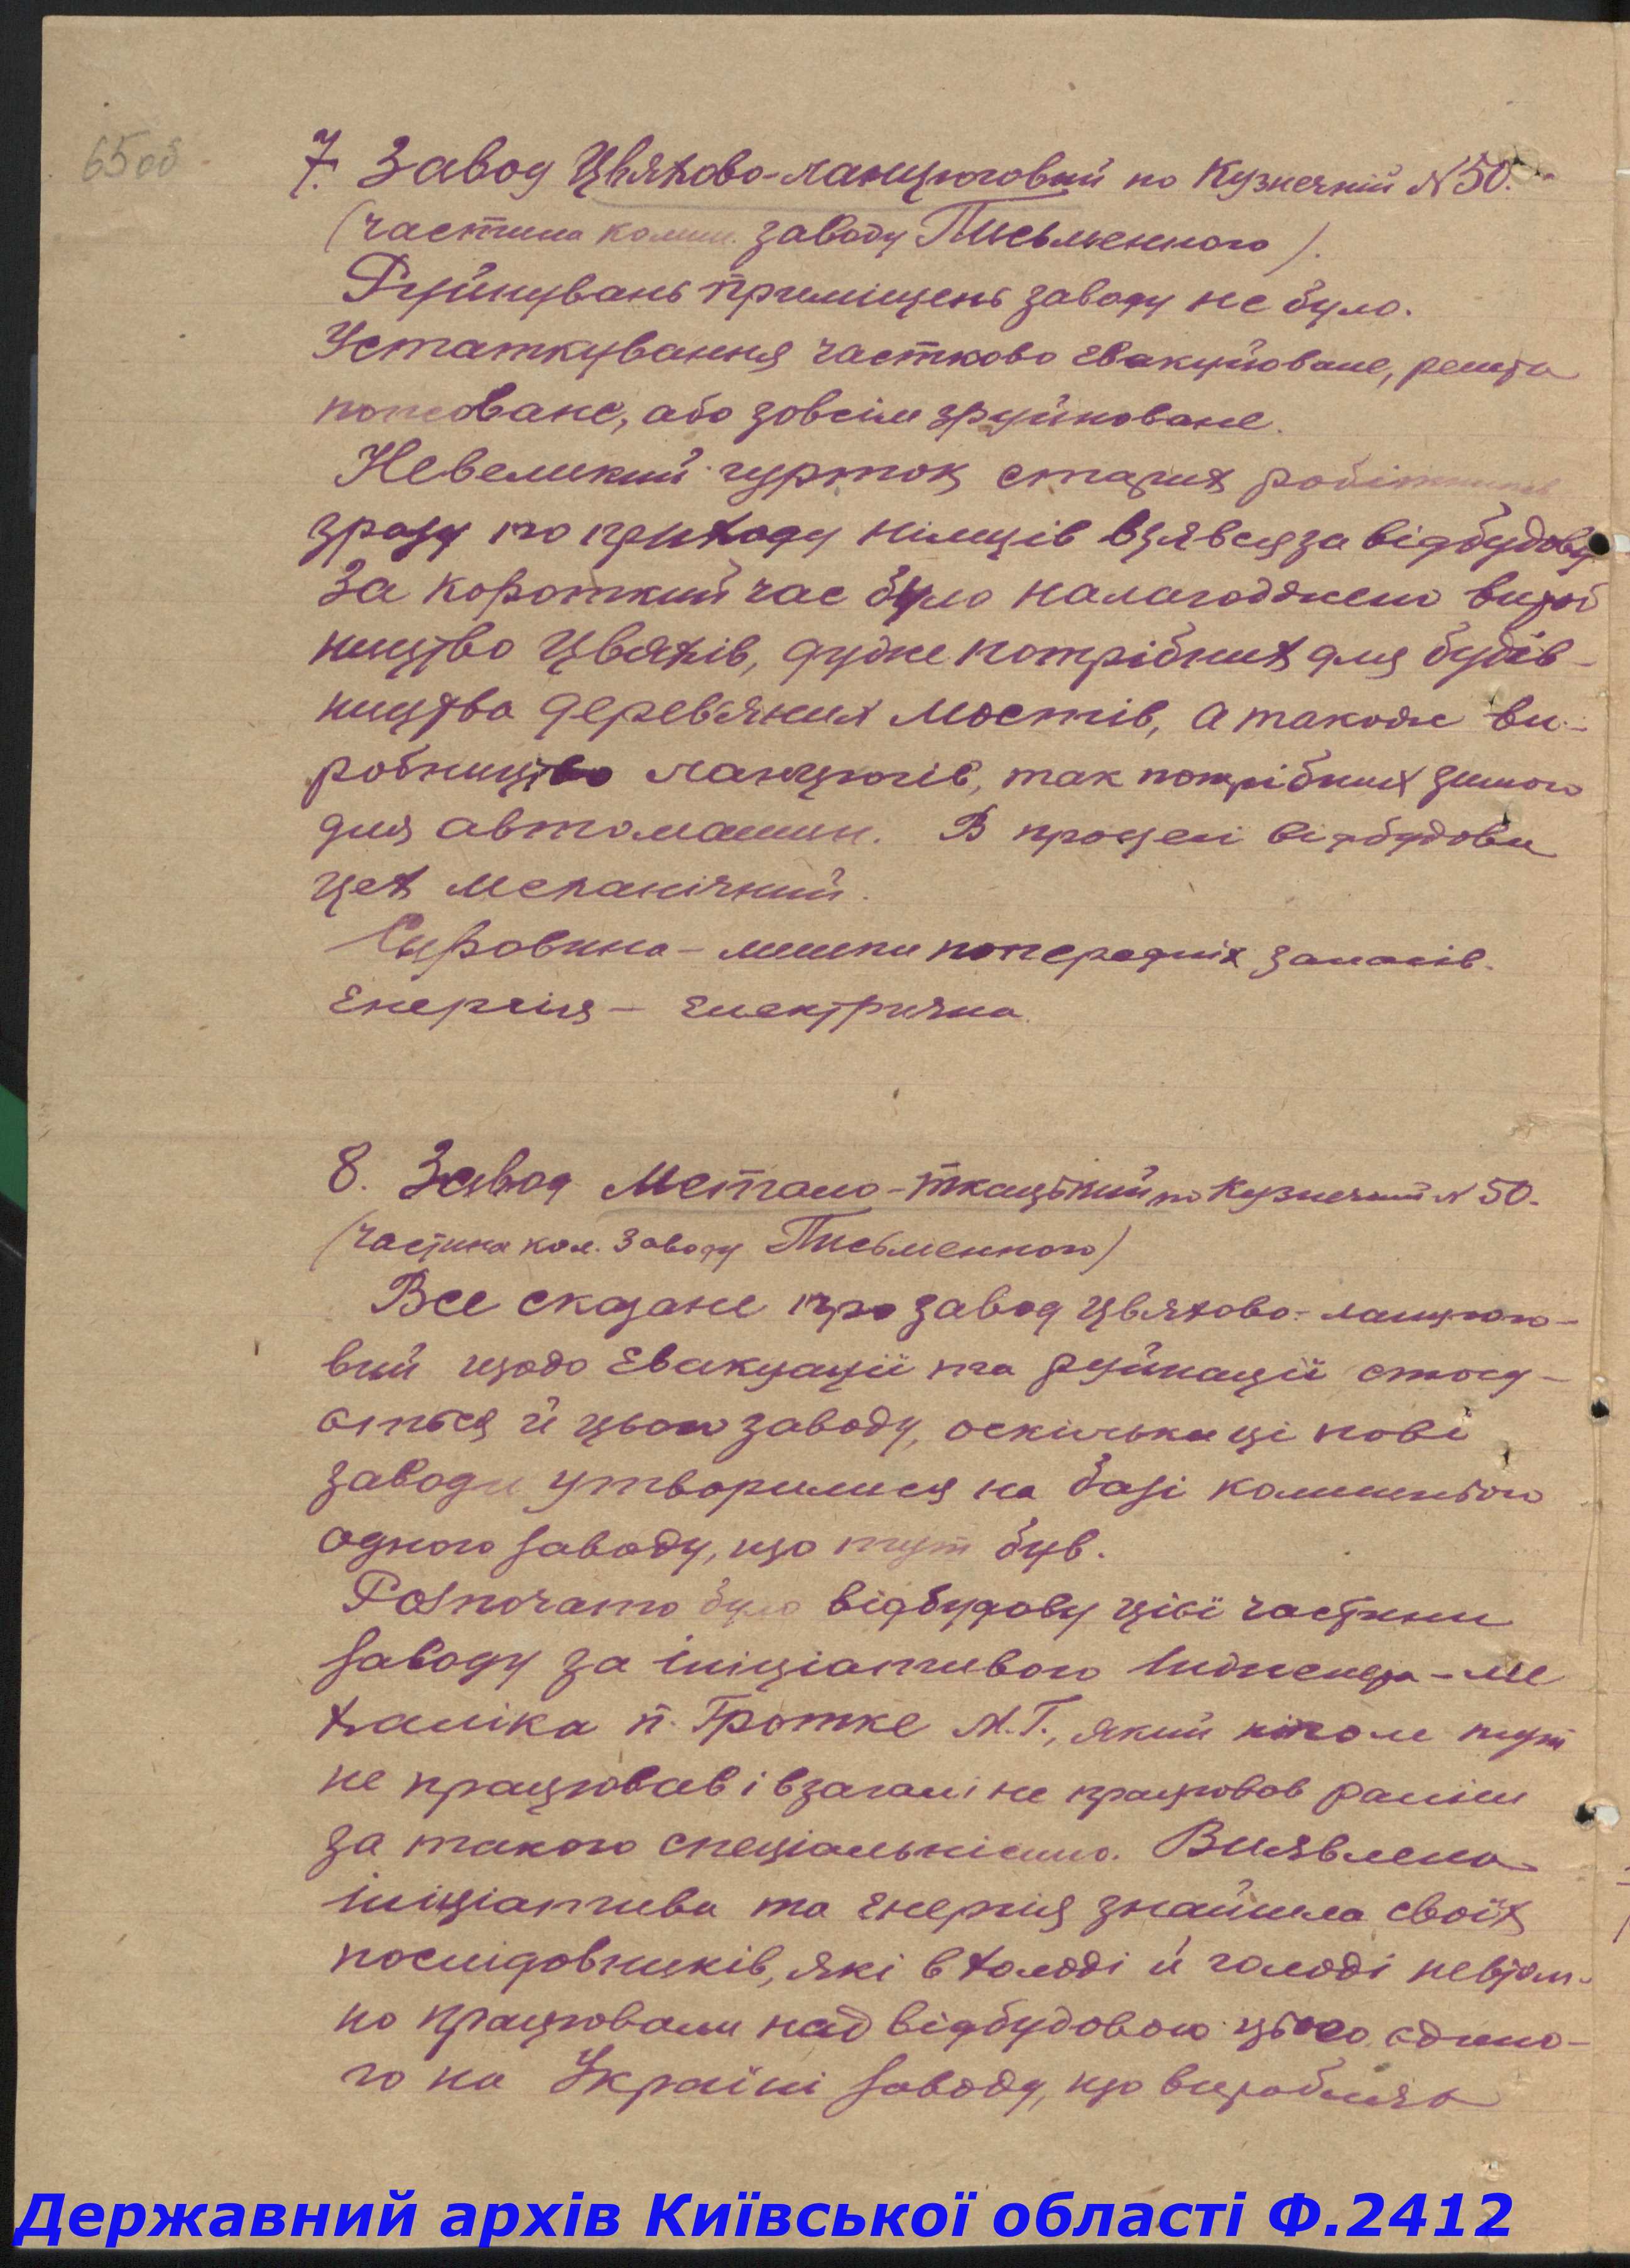 65об
7. Завод Цвяхово-ланцюговий по Кузнечній №50.
(частина колиш. заводу Письменного).
Руйнувань приміщень заводу не було.
Устаткування частково евакуйоване, решта
попсоване, або зовсім зруйноване.
Невеликий гурток старих робітників
зразу по приходу німців взявся за відбудову
За короткий час було налагоджено вироб
ництво цвяхів, дуже потрібних для будів-
ництва дерев'яних мостів, а також ви-
робництво ланцюгів, так потрібних зимою
для автомашин. В процесі відбудови
цех механічний.
Сировина - лишки попередніх запасів.
Енергія - електрична.
8. Завод Метало-ткацький по Кузнечній № 50.
(частина кол. заводу Письменного)
Все сказане про завод цвяхово-ланцюго-
вий щодо евакуації та руйнації стосу-
ється й цього заводу, оскільки ці нові
заводи утворилися на базі колишнього
одного заводу, що тут був.
Розпочато було відбудову цієї частини
заводу за ініціативою інженера-ме
ханіка п. Гротке М.Г., який ніколи тут
не працював і взагалі не працював раніш
за такою спеціальністю. Виявлена
ініціатива та енергія знайшла своїх
послідовників, які в холоді й голоді невтом-
но працювали над відбудовою цього єдино-
го на Україні заводу, що виробляв
Державний архів Київської області Ф.2412